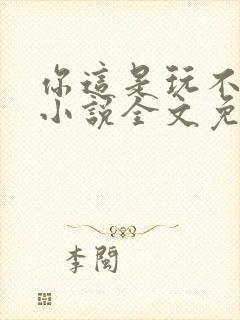 你這是玩不
小說全文免
李閩